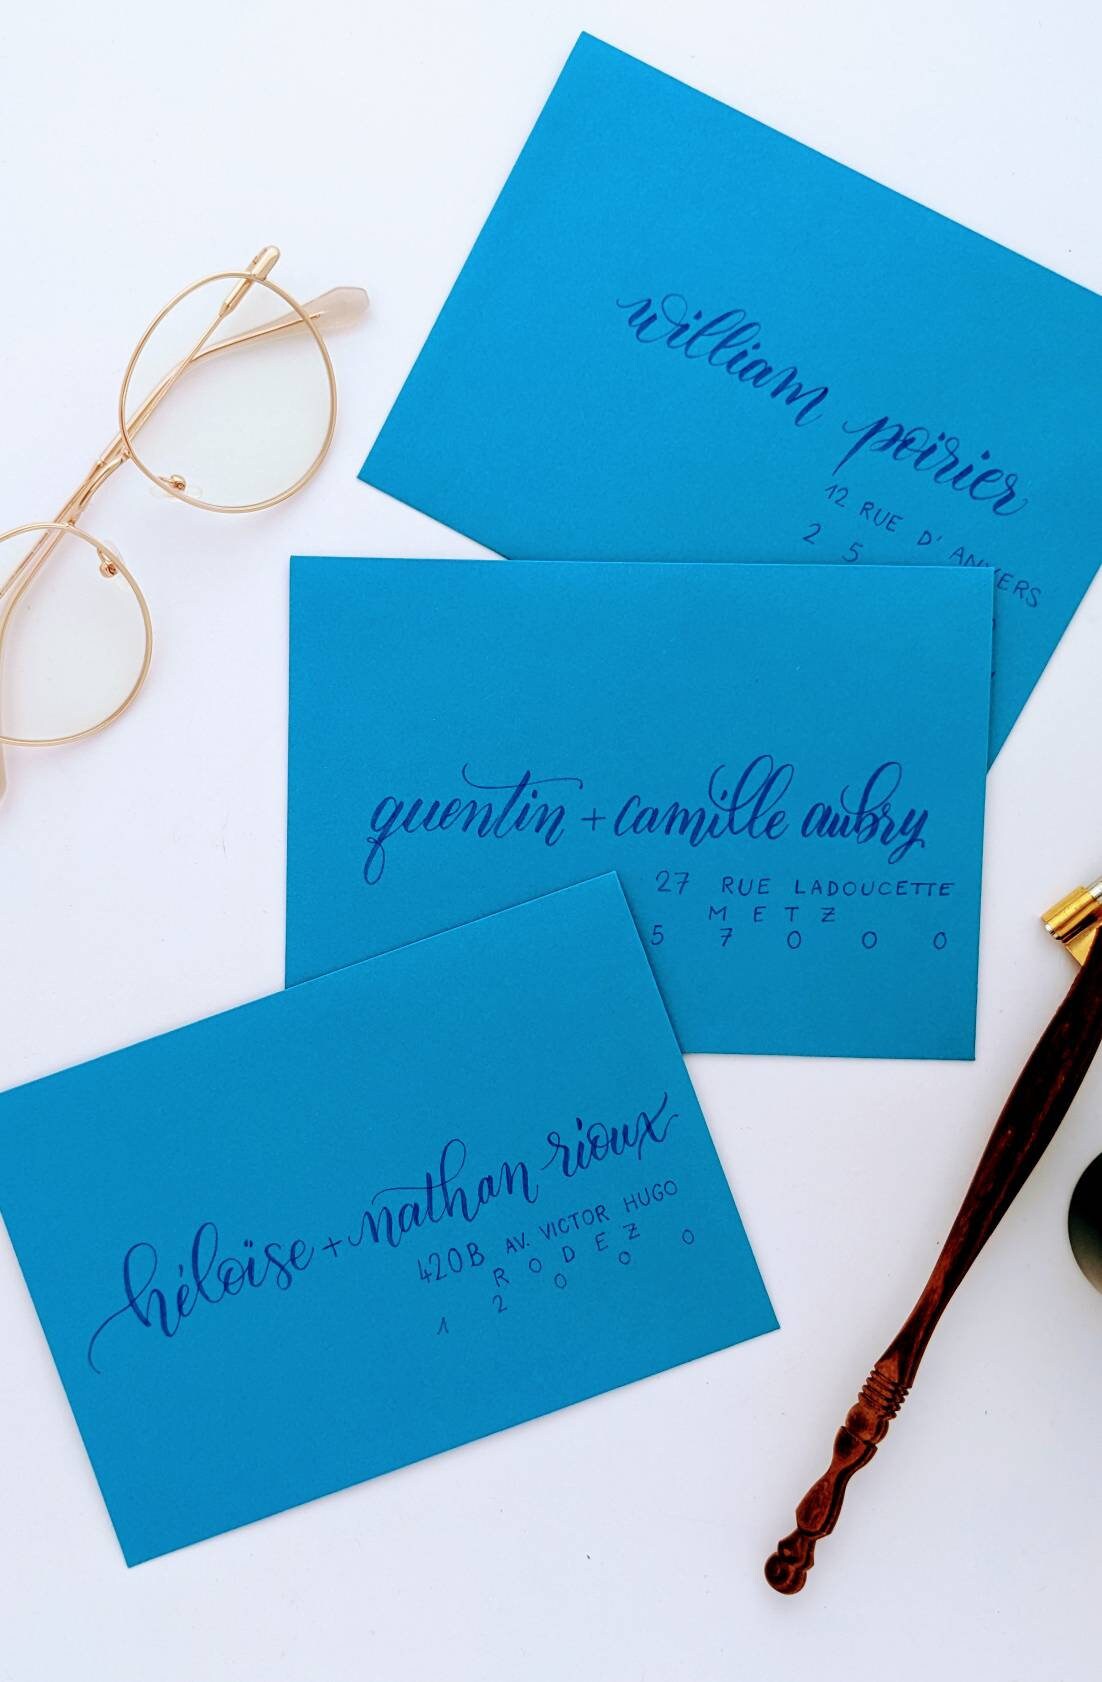 william poirier
12 RUE D' ANVERS
2 5
quentin + camille aubry
27 RUE LADOUCETTE
M E T Z
5 7 0 0 0
héloïse + nathan rioux
420B AV. VICTOR HUGO
R O D E Z
1 2 0 0 0